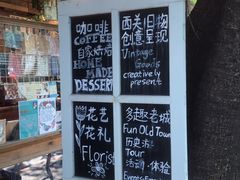 咖啡
COFFEE
自家焙
HOME
MADE
DESSERT
西关旧物
创意呈现
Vintage
Goods
creatively
present
花艺
花礼
Florist
多趣老城
Fun Old Town
历史游
Tour
活动·体验